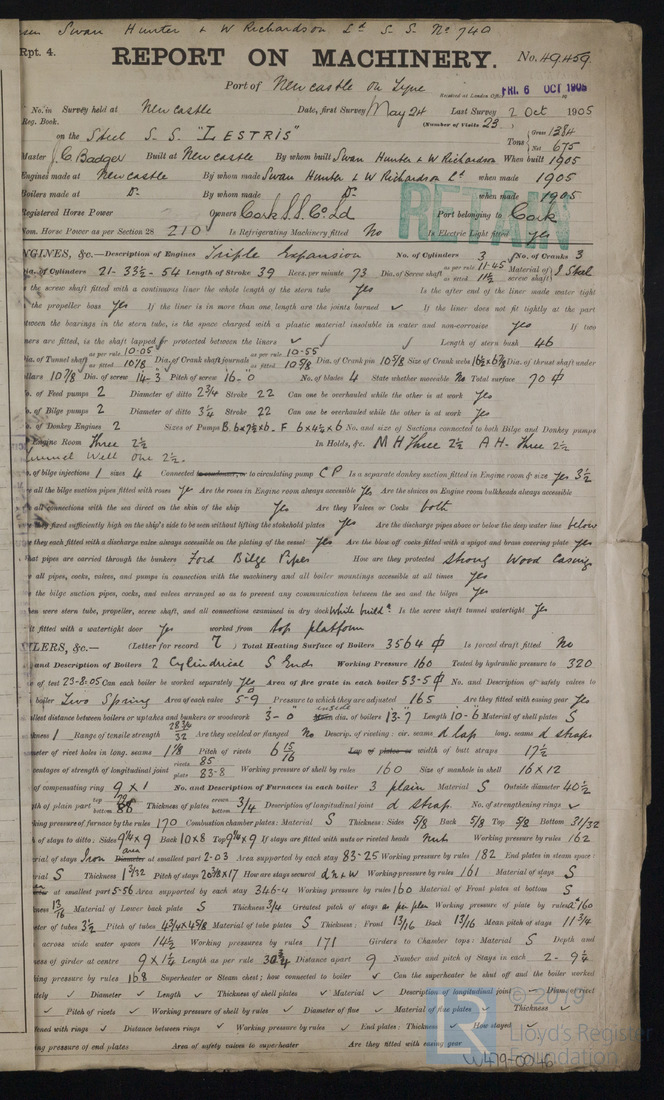 Swan Hunter & W Richardson Ld S. S. No 740
Rpt. 4. REPORT ON MACHINERY. No. 49459
Port of Newcastle on Tyne
Received at London Office FRI. 6 OCT 1905
No. in Survey held at Newcastle Date, first Survey May 24 Last Survey 2 Oct 1905
Reg. Book. (Number of Visits 23
on the Steel S. S. "LESTRIS" Tons Gross 1384 Net 675
Master J. C. Badger Built at Newcastle By whom built Swan Hunter & W Richardson When built 1905
Engines made at Newcastle By whom made Swan Hunter & W Richardson Ld when made 1905
Boilers made at Do. By whom made Do. when made 1905
Registered Horse Power Owners Cork S. S. Co. Ld Port belonging to Cork
Nom. Horse Power as per Section 28 210 Is Refrigerating Machinery fitted No Is Electric Light fitted yes
RETAIN
ENGINES, &c.—Description of Engines Triple Expansion No. of Cylinders 3 No. of Cranks 3
Dia. of Cylinders 21 - 33½ - 54 Length of Stroke 39 Revs. per minute 73 Dia. of Screw shaft as per rule 11.45 as fitted 11½ Material of screw shaft S Steel
Is the screw shaft fitted with a continuous liner the whole length of the stern tube Yes Is the after end of the liner made water tight
in the propeller boss Yes If the liner is in more than one length are the joints burned ✓ If the liner does not fit tightly at the part
between the bearings in the stern tube, is the space charged with a plastic material insoluble in water and non-corrosive Yes If two
liners are fitted, is the shaft lapped or protected between the liners ✓ Length of stern bush 46
Dia. of Tunnel shaft as per rule 10.05 as fitted 10⅞ Dia. of Crank shaft journals as per rule 10.55 as fitted 10⅝ Dia. of Crank pin 10⅝ Size of Crank webs 16½x6⅞ Dia. of thrust shaft under
collars 10⅞ Dia. of screw 14-3" Pitch of screw 16-0" No. of blades 4 State whether moveable No Total surface 70 ф
No. of Feed pumps 2 Diameter of ditto 2¾ Stroke 22 Can one be overhauled while the other is at work Yes
No. of Bilge pumps 2 Diameter of ditto 3¼ Stroke 22 Can one be overhauled while the other is at work Yes
No. of Donkey Engines 2 Sizes of Pumps B. 6x7½x6 - F 6x4½x6 No. and size of Suctions connected to both Bilge and Donkey pumps
Engine Room Three 2½ In Holds, &c. M H Three 2½ A H - Three 2½
Tunnel Well One 2½
No. of bilge injections 1 sizes 4 Connected to condenser, or to circulating pump C P Is a separate donkey suction fitted in Engine room & size Yes 3½
Are all the bilge suction pipes fitted with roses Yes Are the roses in Engine room always accessible Yes Are the sluices on Engine room bulkheads always accessible
Are all connections with the sea direct on the skin of the ship Yes Are they Valves or Cocks both
Are they fixed sufficiently high on the ship's side to be seen without lifting the stokehold plates Yes Are the discharge pipes above or below the deep water line below
Are they each fitted with a discharge valve always accessible on the plating of the vessel Yes Are the blow off cocks fitted with a spigot and brass covering plate Yes
What pipes are carried through the bunkers Ford Bilge Pipes How are they protected Strong Wood Casing
Are all pipes, cocks, valves, and pumps in connection with the machinery and all boiler mountings accessible at all times Yes
Are the bilge suction pipes, cocks, and valves arranged so as to prevent any communication between the sea and the bilges Yes
When were stern tube, propeller, screw shaft, and all connections examined in dry dock While buildg Is the screw shaft tunnel watertight Yes
Is it fitted with a watertight door Yes worked from top platform
BOILERS, &c.— (Letter for record 7) Total Heating Surface of Boilers 3564 ф Is forced draft fitted No
No. and Description of Boilers 2 Cylindrical S Ends Working Pressure 160 Tested by hydraulic pressure to 320
Date of test 23-8-05 Can each boiler be worked separately Yes Area of fire grate in each boiler 53.5 ф No. and Description of safety valves to
each boiler Two Spring Area of each valve 5.9 Pressure to which they are adjusted 165 Are they fitted with easing gear Yes
Smallest distance between boilers or uptakes and bunkers or woodwork 3-0" inside dia. of boilers 13-7" Length 10-6 Material of shell plates S
Thickness 1 Range of tensile strength 28¾ 32 Are they welded or flanged No Descrip. of riveting: cir. seams d lap long. seams d straps
Diameter of rivet holes in long. seams 1⅛ Pitch of rivets 6 15/16 Lap of plates or width of butt straps 17½
Percentages of strength of longitudinal joint rivets 85 plate 83.8 Working pressure of shell by rules 160 Size of manhole in shell 16 x 12
Size of compensating ring 9 x 1 No. and Description of Furnaces in each boiler 3 plain Material S Outside diameter 40½
Length of plain part top bottom Thickness of plates crown bottom ¾ Description of longitudinal joint d strap No. of strengthening rings ✓
Working pressure of furnace by the rules 170 Combustion chamber plates: Material S Thickness: Sides ⅝ Back ⅝ Top ⅝ Bottom 31/32
Pitch of stays to ditto: Sides 9¼x9 Back 10x8 Top 9¼x9 If stays are fitted with nuts or riveted heads nuts Working pressure by rules 162
Material of stays Iron Diameter area at smallest part 2.03 Area supported by each stay 83.25 Working pressure by rules 182 End plates in steam space:
Material S Thickness 1 3/32 Pitch of stays 20⅜x17 How are stays secured d n & w Working pressure by rules 161 Material of stays S
at smallest part 5.56 Area supported by each stay 346.4 Working pressure by rules 160 Material of Front plates at bottom S
Thickness 13/16 Material of Lower back plate S Thickness ¾ Greatest pitch of stays as per plan Working pressure of plate by rules 160
Diameter of tubes 3½ Pitch of tubes 4¾x4⅝ Material of tube plates S Thickness: Front 13/16 Back 13/16 Mean pitch of stays 11¾
Pitch across wide water spaces 14½ Working pressures by rules 171 Girders to Chamber tops: Material S Depth and
thickness of girder at centre 9 x 1¼ Length as per rule 30¾ Distance apart 9 Number and pitch of Stays in each 2 - 9¼
Working pressure by rules 168 Superheater or Steam chest; how connected to boiler ✓ Can the superheater be shut off and the boiler worked
separately ✓ Diameter ✓ Length ✓ Thickness of shell plates ✓ Material ✓ Description of longitudinal joint Diam. of rivet
✓ Pitch of rivets ✓ Working pressure of shell by rules ✓ Diameter of flue ✓ Material of flue plates ✓ Thickness ✓
stiffened with rings ✓ Distance between rings ✓ Working pressure by rules ✓ End plates: Thickness ✓ How stayed ✓
Working pressure of end plates Area of safety valves to superheater Are they fitted with easing gear
W479-0046
LR © 2019 Lloyd's Register Foundation